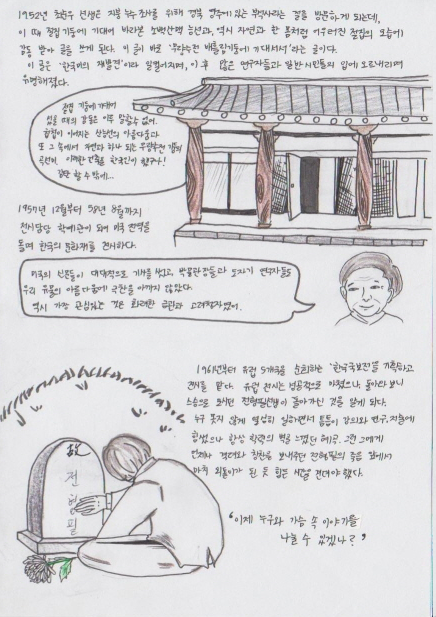 1952년 최순우 선생은 지붕 누수 조사를 위해 경북 영주에 있는 부석사라는 절을 방문하게 되는데,
이 때 절집 기둥에 기대어 바라본 소백산맥 능선과, 역시 자연과 한 몸처럼 어우러진 절집의 모습에
감동 받아 글을 쓰게 된다. 이 글이 바로 '무량수전 배흘림기둥에 기대서서'라는 글이다.
이 글은 '한국미의 재발견'이라 일컬어지며, 이 후 많은 연구자들과 일반 시민들의 입에 오르내리며
유명해졌다.
절집 기둥에 기대어
있을 때의 감동은 이루 말할 수 없어.
이어지는 산능선의 아름다움과
또 그 속에서 자연과 하나 되는 무량수전
이러한 건축을 한국인이
할 수 밖에...
1957년 12월부터 58년 8월까지
전시담당 학예관이 되어 미국 전역을
돌며 한국의 문화재를 전시하다.
미국의 신문들이 대대적으로 기사를 썼고, 박물관장들과 도자기 연구자들도
우리 유물의 아름다움에 극찬을 아끼지 않았다.
역시 가장 관심있는 것은 화려한 금관과 고려청자였어.
1961년부터 유럽 5개국을 순회하는 '한국국보전'을 기획하고
전시를 맡다. 유럽 전시는 성공적으로 마쳤으나, 돌아와 보니
스승으로 모시던 전형필선생이 돌아가신 것을 알게 되다.
누구 못지 않게 열심히 일하면서 틈틈이 강의와 연구, 저술에
힘썼으나 항상 학력의 벽을 느꼈던 혜곡. 그런 그에게
언제나 격려와 칭찬을 보내주던 전형필의 죽음 앞에서
마치 외톨이가 된 듯 힘든 시간을 견뎌야 했다.
故
전
형
필
"이제 누구와 가슴 속 이야기를
나눌 수 있겠나?"